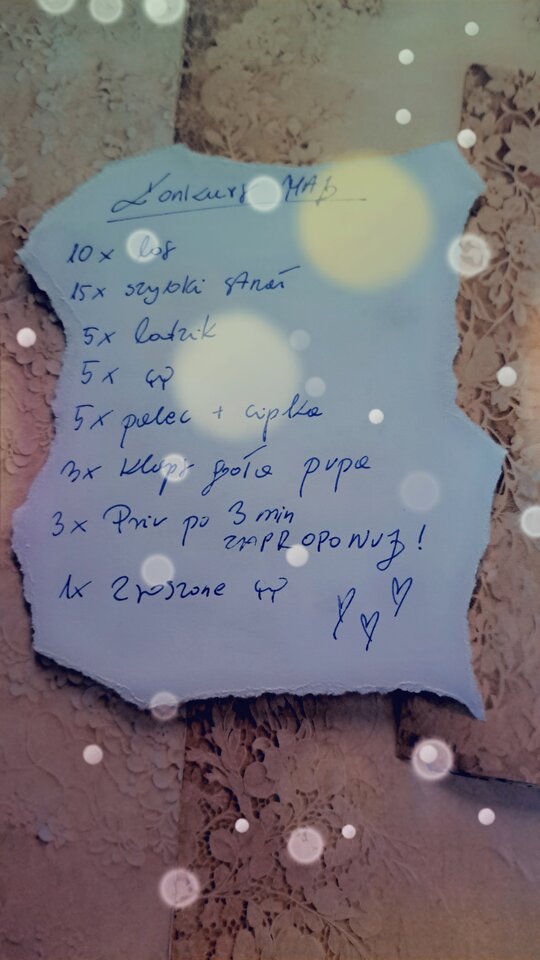 Konkurs MAJ
10x los
15x szybki strzał
5x lodzik
5x
5x palec + cipka
3x klaps goła pupa
3x Priv po 3 min
ZAPROPONUJ!
1x Zroszone